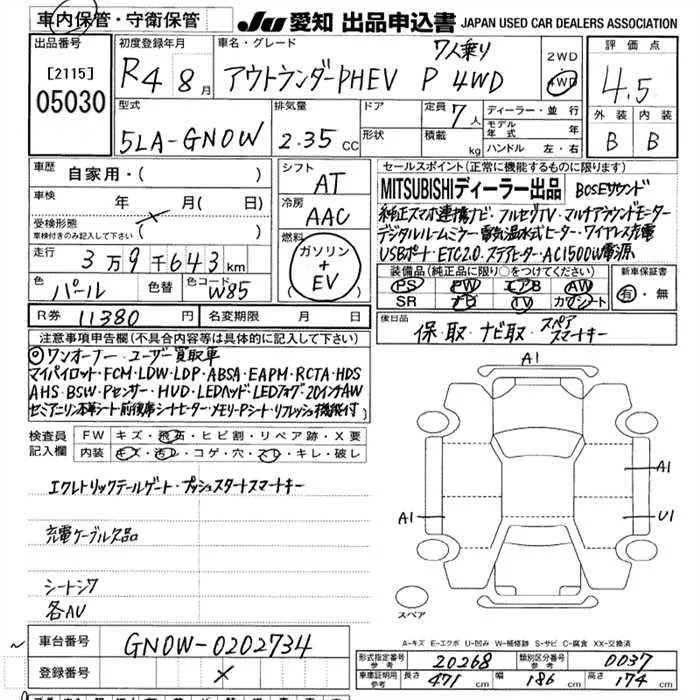 車内保管・守衛保管
JU 愛知 出品申込書 JAPAN USED CAR DEALERS ASSOCIATION
出品番号
[2115]
05030
初度登録年月
R4 8月
車名・グレード
7人乗り
アウトランダーPHEV P 4WD
2WD
4WD
評価点
4.5
外装 内装
B B
型式
5LA-GN0W
排気量
2.35 CC
ドア
形状
定員 7人
積載 kg
ディーラー・並行
モデル年式 年
ハンドル 左・右
車歴
自家用・( )
車検
年 月( 日)
受検形態
車検付きのみ記入して下さい
( )
走行
3万9千643km
色
パール
色替
色コード
W85
R券 11380 円
名変期限 月 日
シフト
AT
冷房
AAC
燃料
ガソリン
+
EV
セールスポイント(正常に機能するものに限ります)
MITSUBISHIディーラー出品 BOSEサウンド
純正スマホ連携ナビ・フルセグTV・マルチアラウンドモニター
デジタルルームミラー・電気温水式ヒーター・ワイヤレス充電
USBポート・ETC2.0・ステアヒーター・AC1500W電源
装備品(純正品に限り○をつけてください)
PS PW エアB AW
SR ナビ TV カワシート
新車保証書
有・無
後日品
保・取・ナビ取・スペアスマートキー
注意事項申告欄(不具合内容等は具体的に記入して下さい)
◎ワンオーナー・ユーザー買取車
マイパイロット・FCM・LDW・LDP・ABSA・EAPM・RCTA・HDS
AHS・BSW・Pセンサー・HUD・LEDヘッド・LEDフォグ・20インチAW
セミアニリン本革シート・前後席シートヒーター・メモリーPシート・リフレッシュ機能付
検査員
記入欄
FW キズ・飛石・ヒビ割・リペア跡・X要
内装 キズ・汚レ・コゲ・穴・スレ・キレ・破レ
エレクトリックテールゲート・プッシュスタートスマートキー
充電ケーブル欠品
シートシワ
各AU
A1
A1
A1
U1
スペア
A-キズ E-エクボ U-凹み W-補修跡 S-サビ C-腐食 XX-交換済
車台番号 GN0W-0202734
登録番号 ×
形式指定番号
参考
20268
類別区分番号
参考
0037
車庫証明用
参考
長さ 471 cm
幅 186 cm
高さ 174 cm